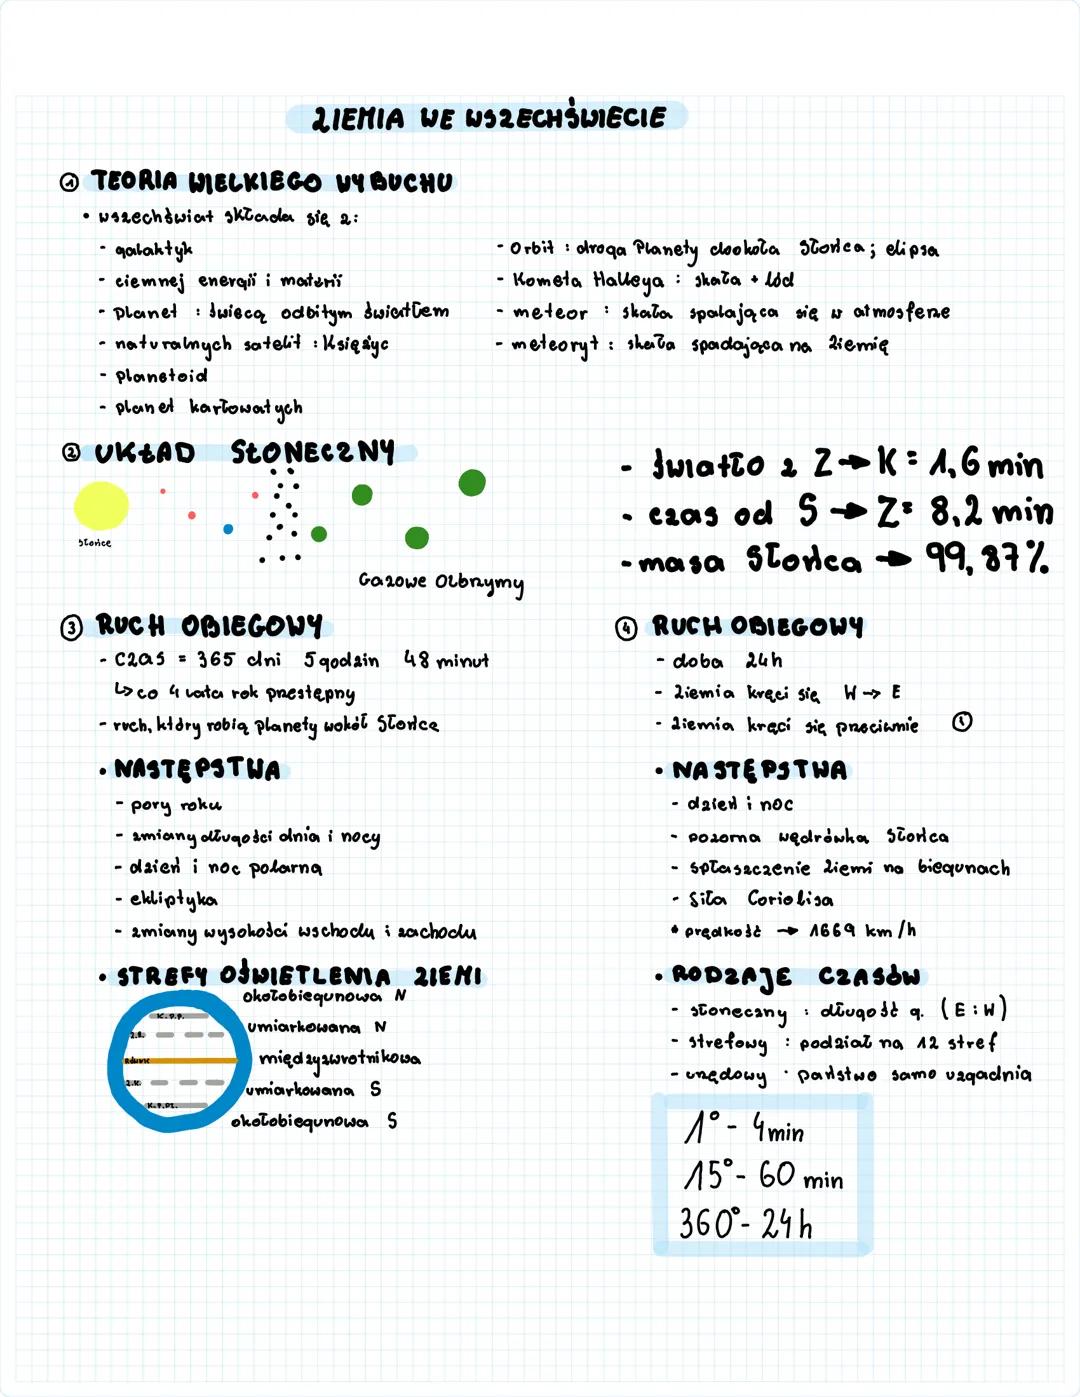 ZIEMIA WE WSZECHŚWIECIE
① TEORIA WIELKIEGO WYBUCHU
• wszechświat składa się z:
- galaktyk
- ciemnej energii i materii
- planet : świecą odbitym światłem
- naturalnych satelit : Księżyc
- planetoid
- planet karłowatych
- Orbit : droga Planety dookoła Słońca; elipsa
- Kometa Halleya : skała + lód
- meteor : skała spalająca się w atmosferze
- meteoryt : skała spadająca na Ziemię
② UKŁAD SŁONECZNY
Słońce
Gazowe Olbrzymy
- światło z Z → K = 1,6 min
- czas od S → Z = 8,2 min
- masa Słońca → 99,87%
③ RUCH OBIEGOWY
- czas = 365 dni 5 godzin 48 minut
↳ co 4 lata rok przestępny
- ruch, który robią planety wokół Słońca
• NASTĘPSTWA
- pory roku
- zmiany długości dnia i nocy
- dzień i noc polarna
- ekliptyka
- zmiany wysokości wschodu i zachodu
• STREFY OŚWIETLENIA ZIEMI
okołobiegunowa N
umiarkowana N
międzyzwrotnikowa
umiarkowana S
okołobiegunowa S
K.P.P.
Z.R.
Równik
Z.K.
K.P.Pł.
④ RUCH OBIEGOWY
- doba 24h
- Ziemia kręci się W → E
- Ziemia kręci się przeciwnie
• NASTĘPSTWA
- dzień i noc
- pozorna wędrówka Słońca
- spłaszczenie Ziemi na biegunach
- Siła Coriolisa
• prędkość → 1669 km/h
• RODZAJE CZASÓW
- słoneczny : długość g. (E i W)
- strefowy : podział na 12 stref
- urzędowy : państwo samo uzgadnia
1° - 4 min
15° - 60 min
360° - 24h